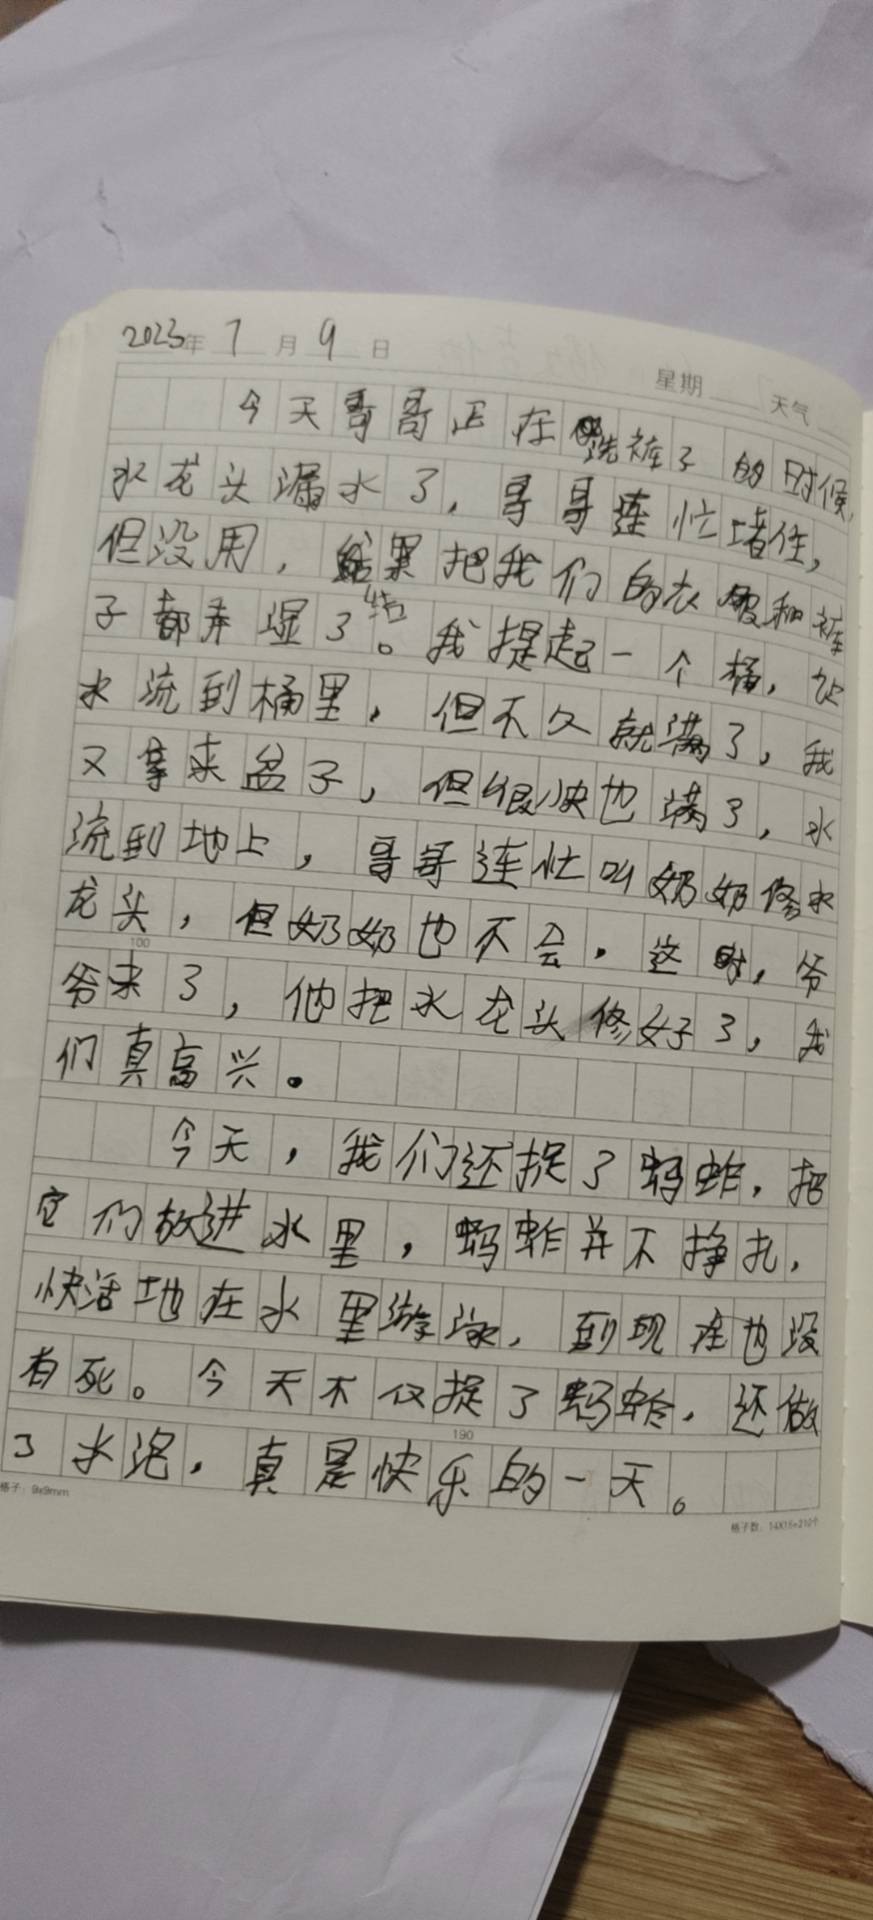 2023年7月9日 星期 天气
今天哥哥正在洗裤子的时候,
水龙头漏水了,哥哥连忙堵住,
但没用,结果把我们的衣服和裤
结
子都弄湿了。我提起一个桶,让
水流到桶里,但不久就满了,我
又拿来盆子,但很快也满了,水
流到地上,哥哥连忙叫奶奶修水
龙头,但奶奶也不会。这时,爷
100
爷来了,他把水龙头修好了,我
们真高兴。
今天,我们还捉了蚂蚱,把
它们放进水里,蚂蚱并不挣扎,
快活地在水里游泳,到现在也没
有死。今天不仅捉了蚂蚱,还做
190
了水泡,真是快乐的一天。
格子:9x9mm 格子数:14X15=210个